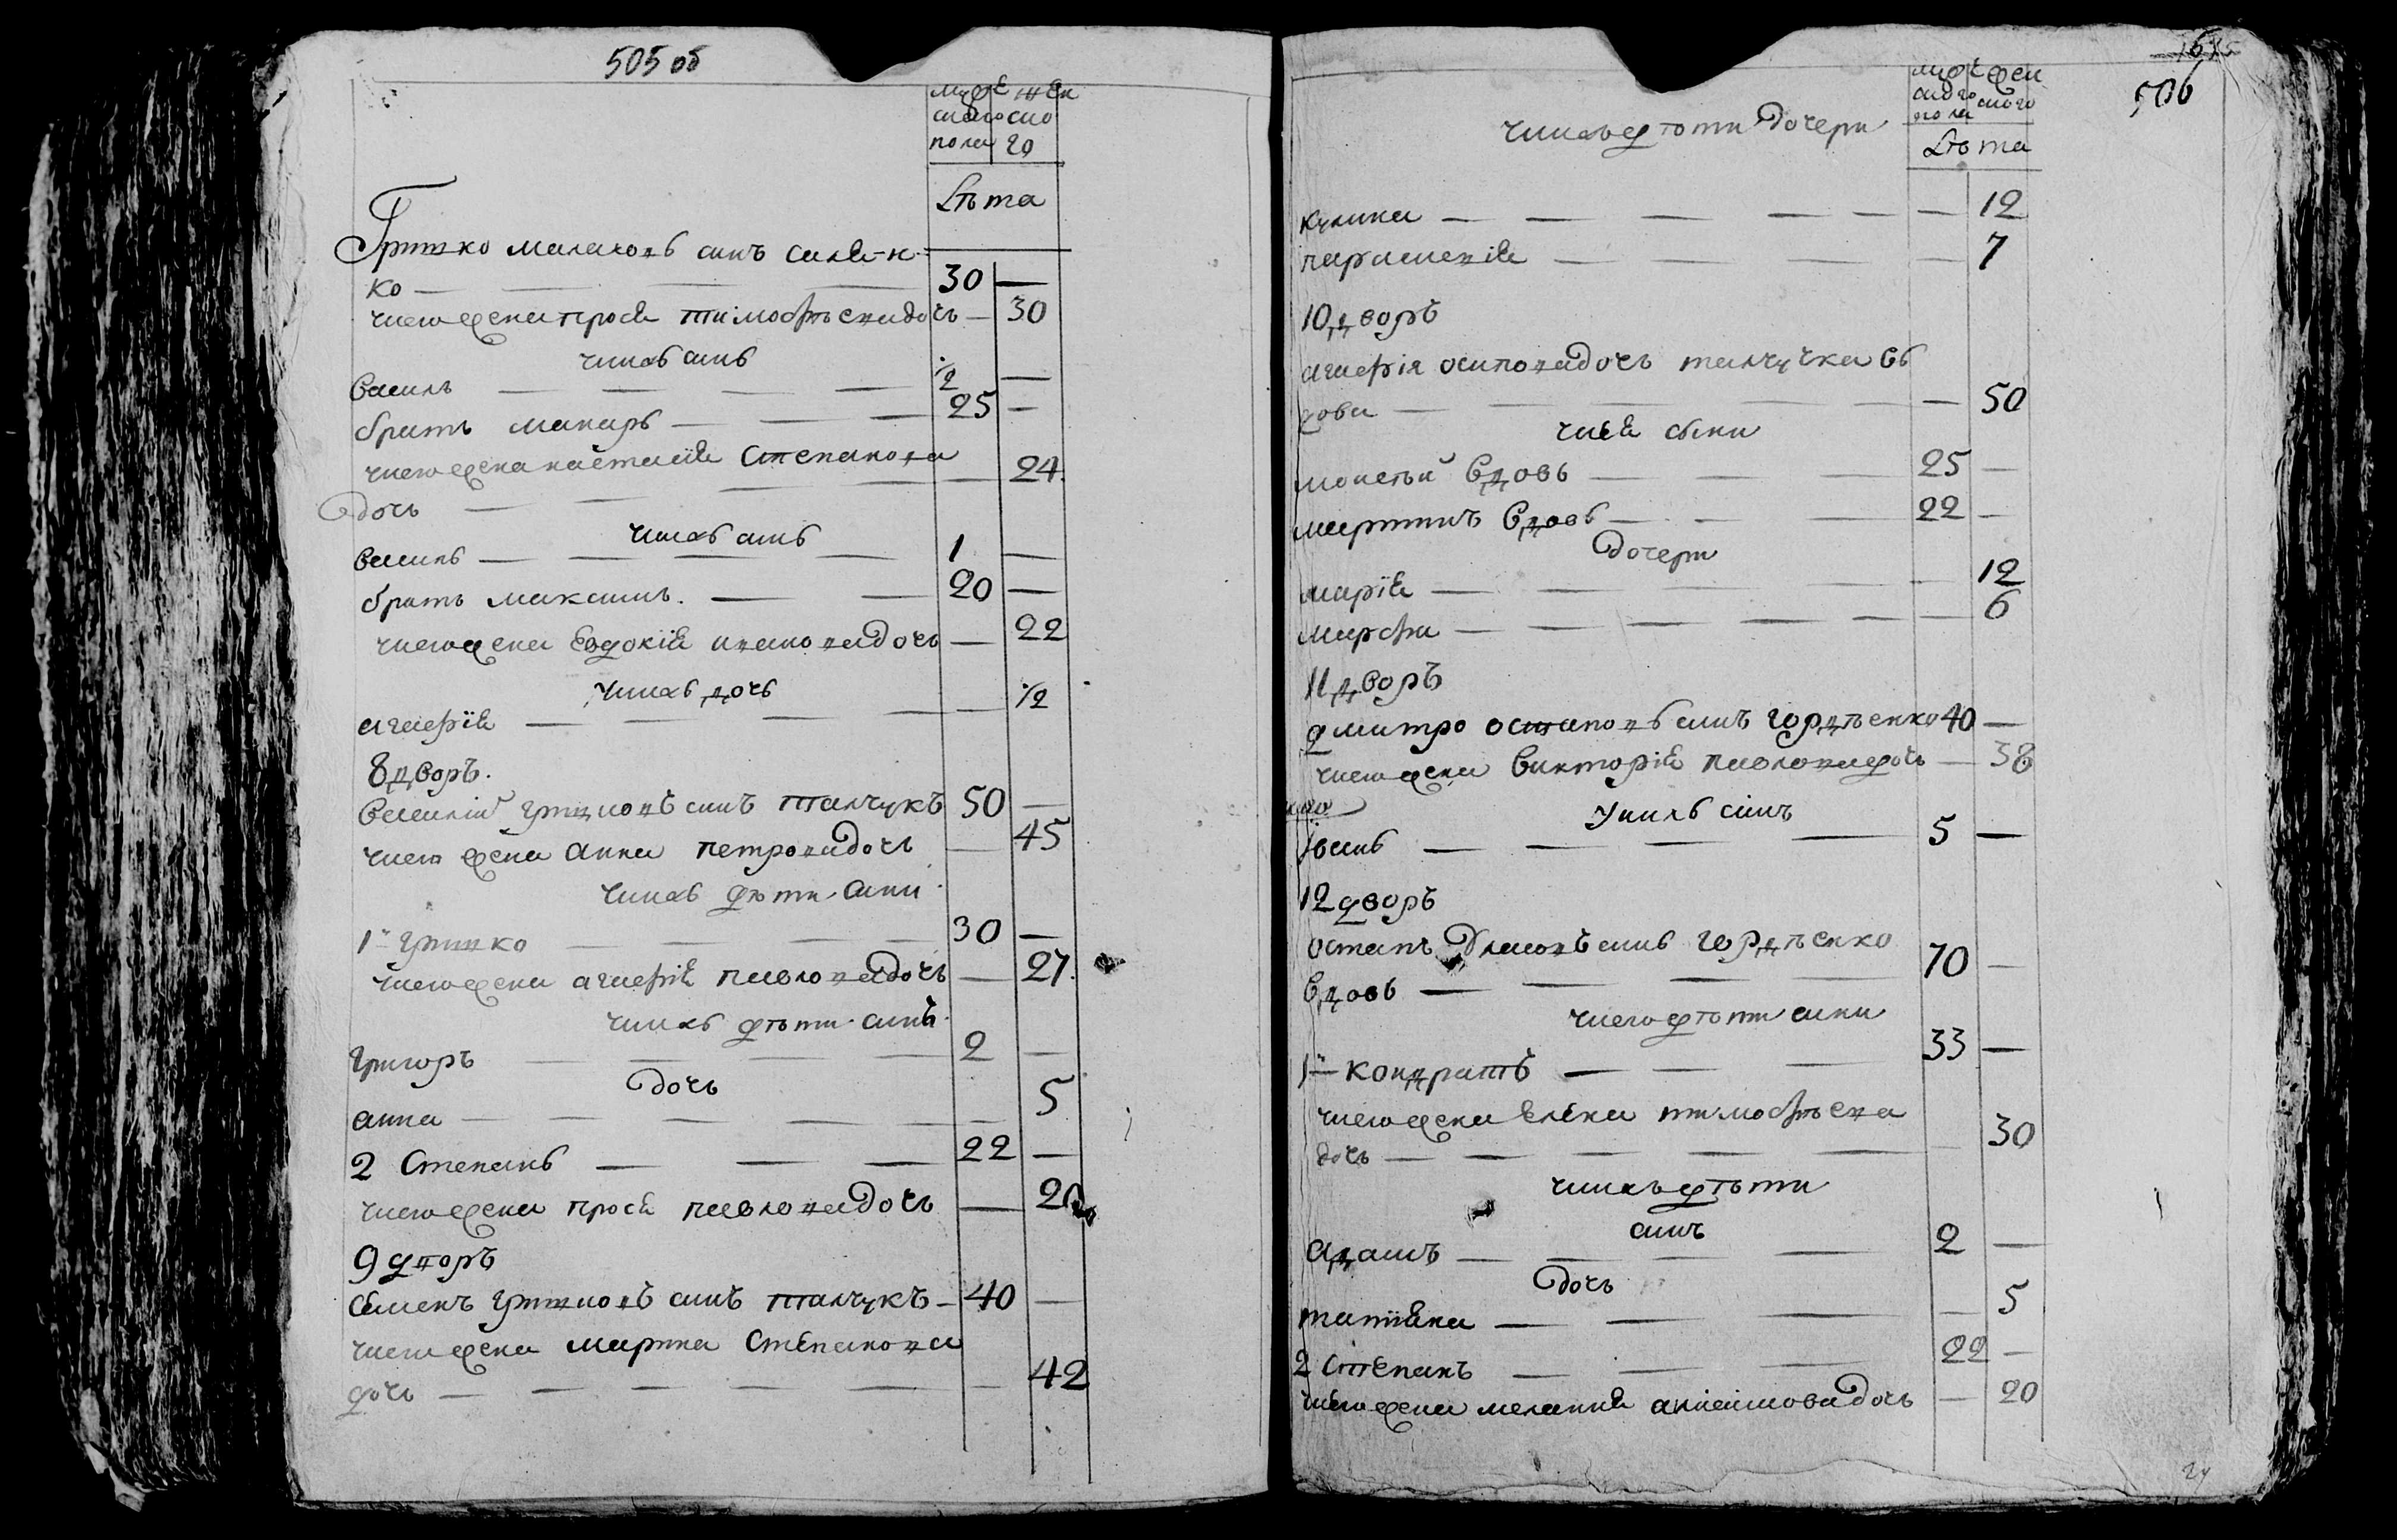 505 об
мужескаго пола
женскаго
Лѣта
Грицко малаховъ синъ саленко — 30 —
ко
чиегожена прося тимофѣевадочь — 30
чихъ синъ
василь — 1/2 —
братъ макаръ — 25 —
чиегожена настасия степанова
дочь — 24
чихъ синъ
василь — 1 —
братъ максимъ. — 20 —
чиегожена евдокия ивановадочь — 22
чихъ дочь
агафия — 1/2
8 дворъ.
василий грицковъ синъ талчукъ 50 —
чиегожена анна петровадочь — 45
чихъ дѣти сини
1й грицко — 30 —
чиегожена агафия павловадочь — 27
чихъ дѣти синъ
григоръ — 2 —
дочь
анна — 5
2 степанъ — 22 —
чиегожена прося павловадочь — 20
9 дворъ
семенъ грицковъ синъ талчукъ — 40 —
чиегожена марина степанова
дочь — 42
506
чихъ дѣти дочери
мужескаго пола
женскаго
Лѣта
кулина — 12
параскевия — 7
10 дворъ
агафия осиповадочь талчучка в
дова — 50
чиея сыни
моисей вдовъ — 25 —
мартинъ вдовъ — 22 —
дочери
мария — 12
марфа — 6
11 дворъ
дмитро остаповъ синъ гордѣенко 40 —
чиегожена виктория павловадочь — 38
у нихъ синъ
иванъ — 5 —
12 дворъ
остапъ власовъ синъ гордѣенко
вдовъ — 70 —
чиего дѣти сини
1й кондратъ — 33 —
чиегожена елена тимофѣева
дочь — 30
чихъ дѣти
синъ
адамъ — 2 —
дочь
татияна — 5
2 степанъ — 22 —
чиегожена мелания анисимовадочь — 20